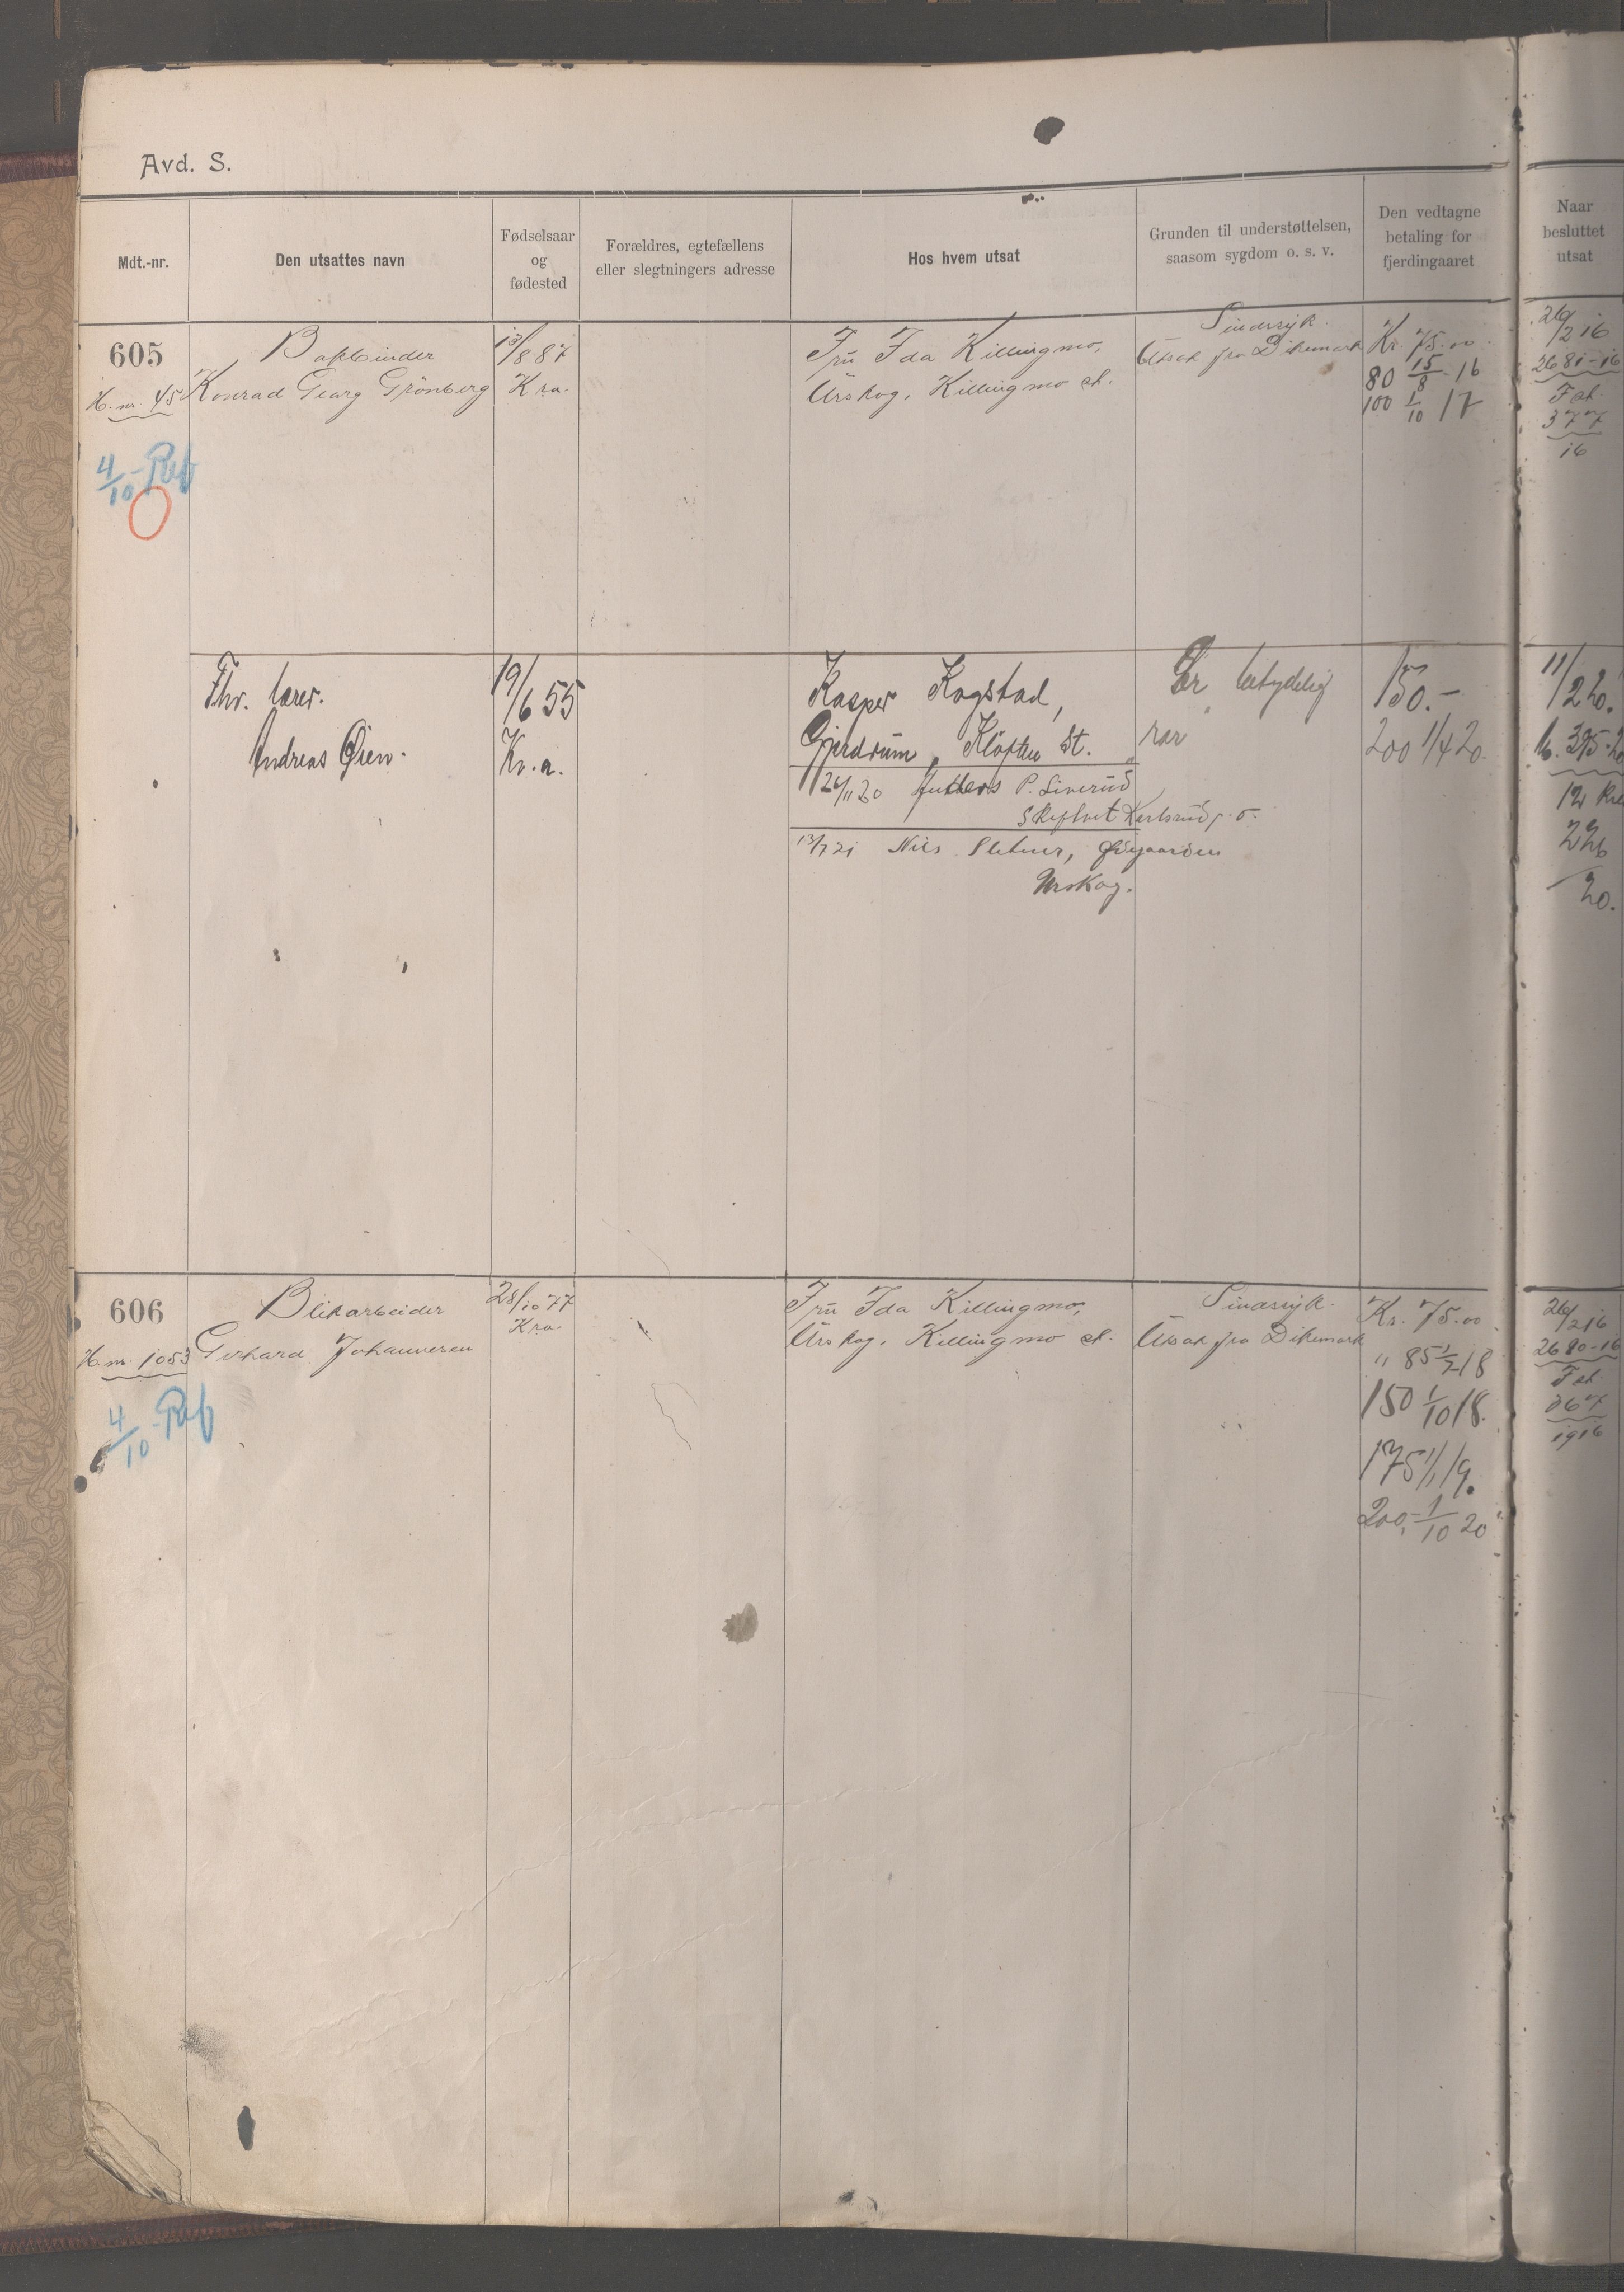 Avd. S.
Mdt.-nr.
Den utsattes navn
Fødselsaar
og
fødested
Forældres, egtefællens
eller slegtningers adresse
Hos hvem utsat
Grunden til understøttelsen,
saasom sygdom o. s. v.
Den vedtagne
betaling for
fjerdingaaret
Naar
besluttet
utsat
605
H. nr. 45
4/10 - Ref
Bokbinder
Konrad Georg Grönberg
13/8 87
Kra.
Frü Ida Killingmo,
Urskog, Killingmo st.
Sinnssyk.
Utsat fra Dikemark
Kr. 75.00
80 15/8 - 16
100 1/10 17
26/2 16
2681-16
Fat.
377
16
Fhv. lærer.
Andreas Øien.
19/6 55
Kr.a.
Kasper Kogstad,
Gjerdrüm, Kløften St.
26/11 20 Anders P. Liverüd
Skiptvet Karlsrud p. o.
13/7 21 Nils Sletner, Ødegaarden
Urskog.
Er betydelig
rar
150.-
200 1/4 20.
11/2 20.
b. 395-20
12 Kre
226
20.
606
H. nr. 1053
4/10 - Ref
Blikarbeider
Gerhard Johannesen
28/10 77
Kra.
Frü Ida Killingmo,
Urskog, Killingmo st.
Sinnssyk.
Utsat fra Dikemark
Kr. 75.00
" 85 1/2 18
150 1/10 18.
175 1/1 19.
200,- 1/10 20
26/2 16
2680-16
Fat.
367
1916